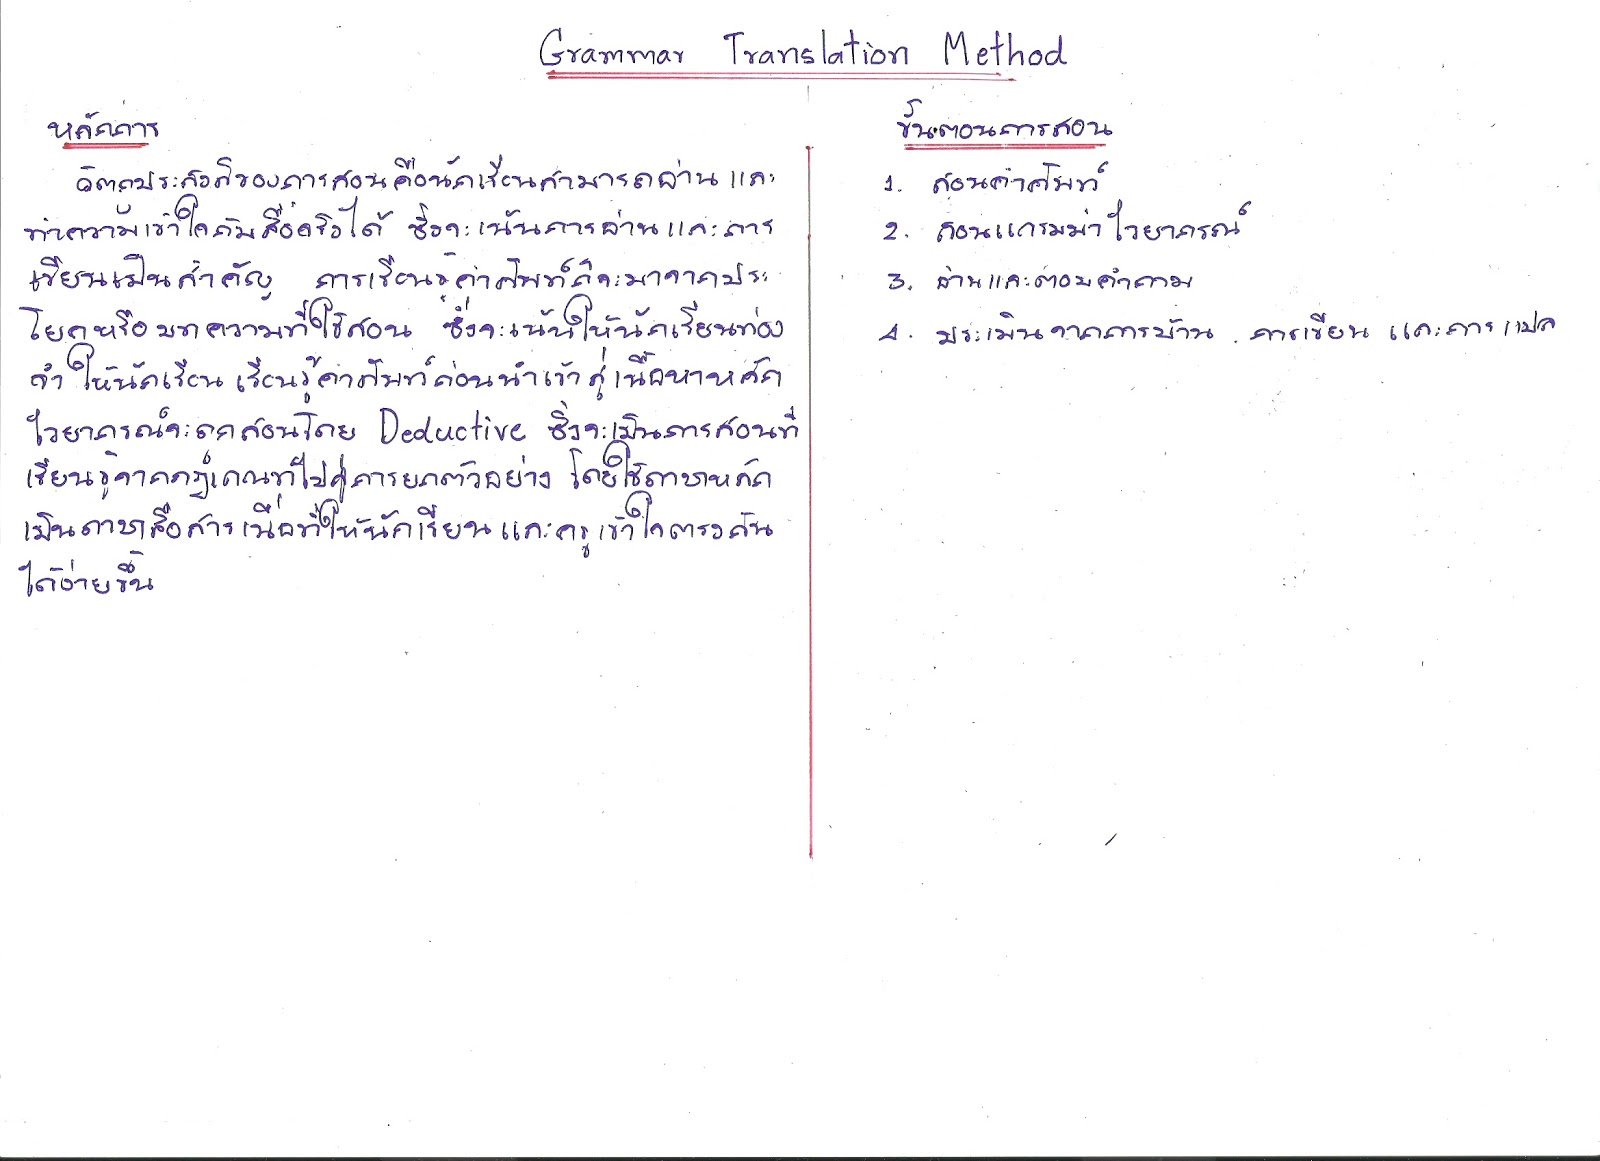 Grammar Translation Method
หลักการ
วัตถุประสงค์ของการสอนคือนักเรียนสามารถอ่าน และ
ทำความเข้าใจกับสื่อจริงได้ ซึ่งจะเน้นการอ่านและการ
เขียนเป็นสำคัญ การเรียนรู้คำศัพท์ก็จะมาจากประ
โยคหรือบทความที่ใช้สอน ซึ่งจะเน้นให้นักเรียนท่อง
จำ ให้นักเรียน เรียนรู้คำศัพท์ก่อนนำเข้าสู่เนื้อหาหลัก
ไวยากรณ์จะถูกสอนโดย Deductive ซึ่งจะเป็นการสอนที่
เรียนรู้จากกฎเกณฑ์ไปสู่การยกตัวอย่าง โดยใช้ภาษาหลัก
เป็นภาษาสื่อสารเพื่อที่ให้นักเรียนและครูเข้าใจตรงกัน
ได้ง่ายขึ้น
ขั้นตอนการสอน
1. สอนคำศัพท์
2. สอนแกรมม่า ไวยากรณ์
3. อ่านและตอบคำถาม
4. ประเมินจากการบ้าน การเขียน และการแปล